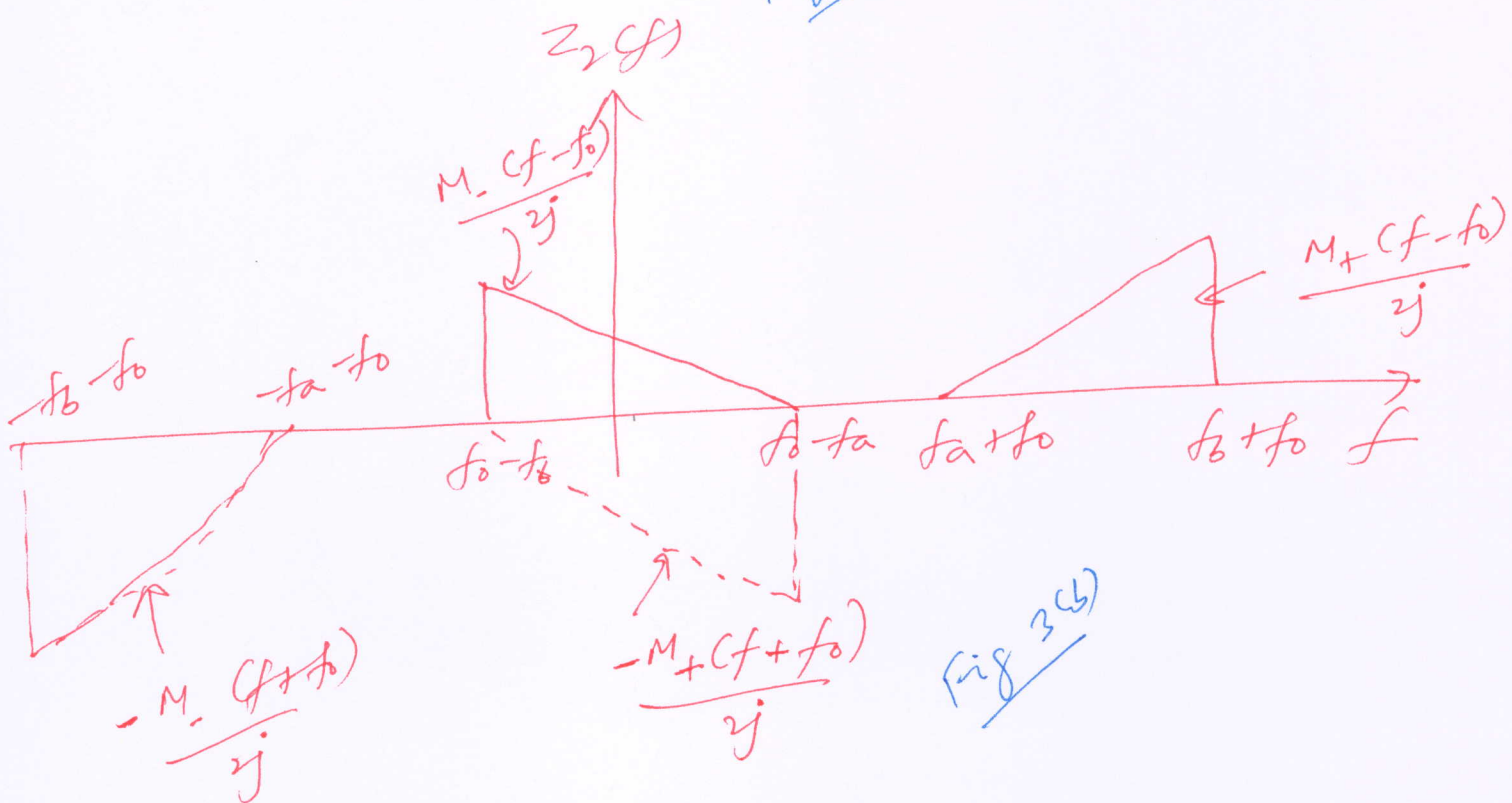 Z₂(f)
M₋(f-f₀)
2j
M₊(f-f₀)
2j
-fb-f₀
-fa-f₀
f₀-fb
f₀-fa
fa+f₀
fb+f₀
f
-M₋(f+f₀)
2j
-M₊(f+f₀)
2j
Fig 3(b)